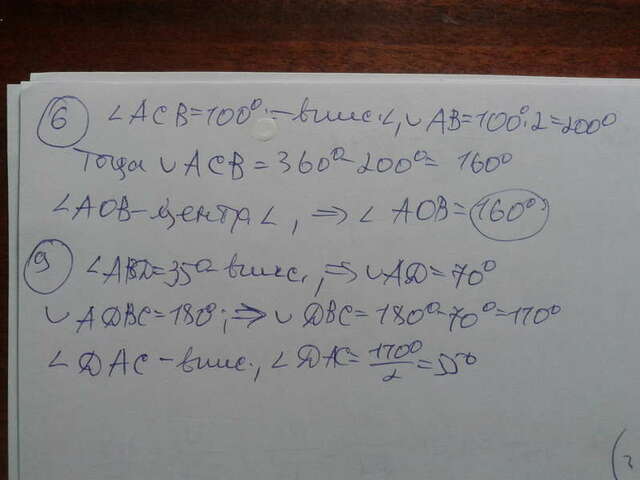 6 ∠ACB=100° - впис.∠, ∪AB=100°·2=200°
Тогда ∪ACB=360°-200°=160°
∠AOB-центр.∠, ⇒ ∠AOB=160°
9 ∠ABD=35°-впис., ⇒ ∪AD=70°
∪ADBC=180°; ⇒ ∪DBC=180°-70°=110°
∠DAC-впис., ∠DAC=110°/2=55°